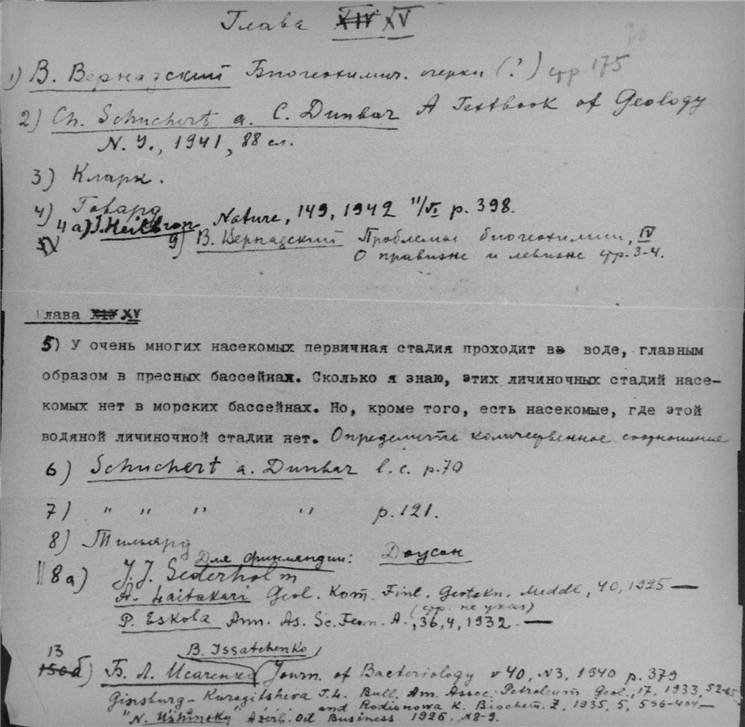 Глава XIV XV
1) В. Вернадский Биогеохимич. очерки (?) стр 175
2) Ch. Schuchert a. C. Dunbar A Textbook of Geology
N. Y., 1941, 88 сл.
3) Кларк.
4) Говард
4а) J. Heilbron Nature, 149, 1942 11/VI p. 398.
9) В. Вернадский Проблемы биогеохимии, IV
О правизне и левизне стр. 3-4.
Глава XIV XV
5) У очень многих насекомых первичная стадия проходит в воде, главным
образом в пресных бассейнах. Сколько я знаю, этих личиночных стадий насе-
комых нет в морских бассейнах. Но, кроме того, есть насекомые, где этой
водяной личиночной стадии нет. Определите количественное соотношение
6) Schuchert a. Dunbar l. c. p. 70
7) " " " " p. 121.
8) Тильярд
Для финляндии: Доусон
8а) J. J. Sederholm
A. Laitakari Geol. Kom. Finl. Geotekn. Meddl., 40, 1925 —
(стр. не указ)
P. Eskola Ann. Ac. Sc. Fenn. A., 36, 4, 1932 —
B. Issatchenko
13
150б) Б. Л. Исаченко Journ. of Bacteriology v 40, N3, 1940 p. 379
Ginsburg-Karagitsheva T. L. Bull. Am. Assoc. Petroleum Geol., 17, 1933, 52-65
" " " and Rodionowa K. Biochem. Z, 1935, 5,
"N. Ushinsky" Azerb. Oil Business 1926